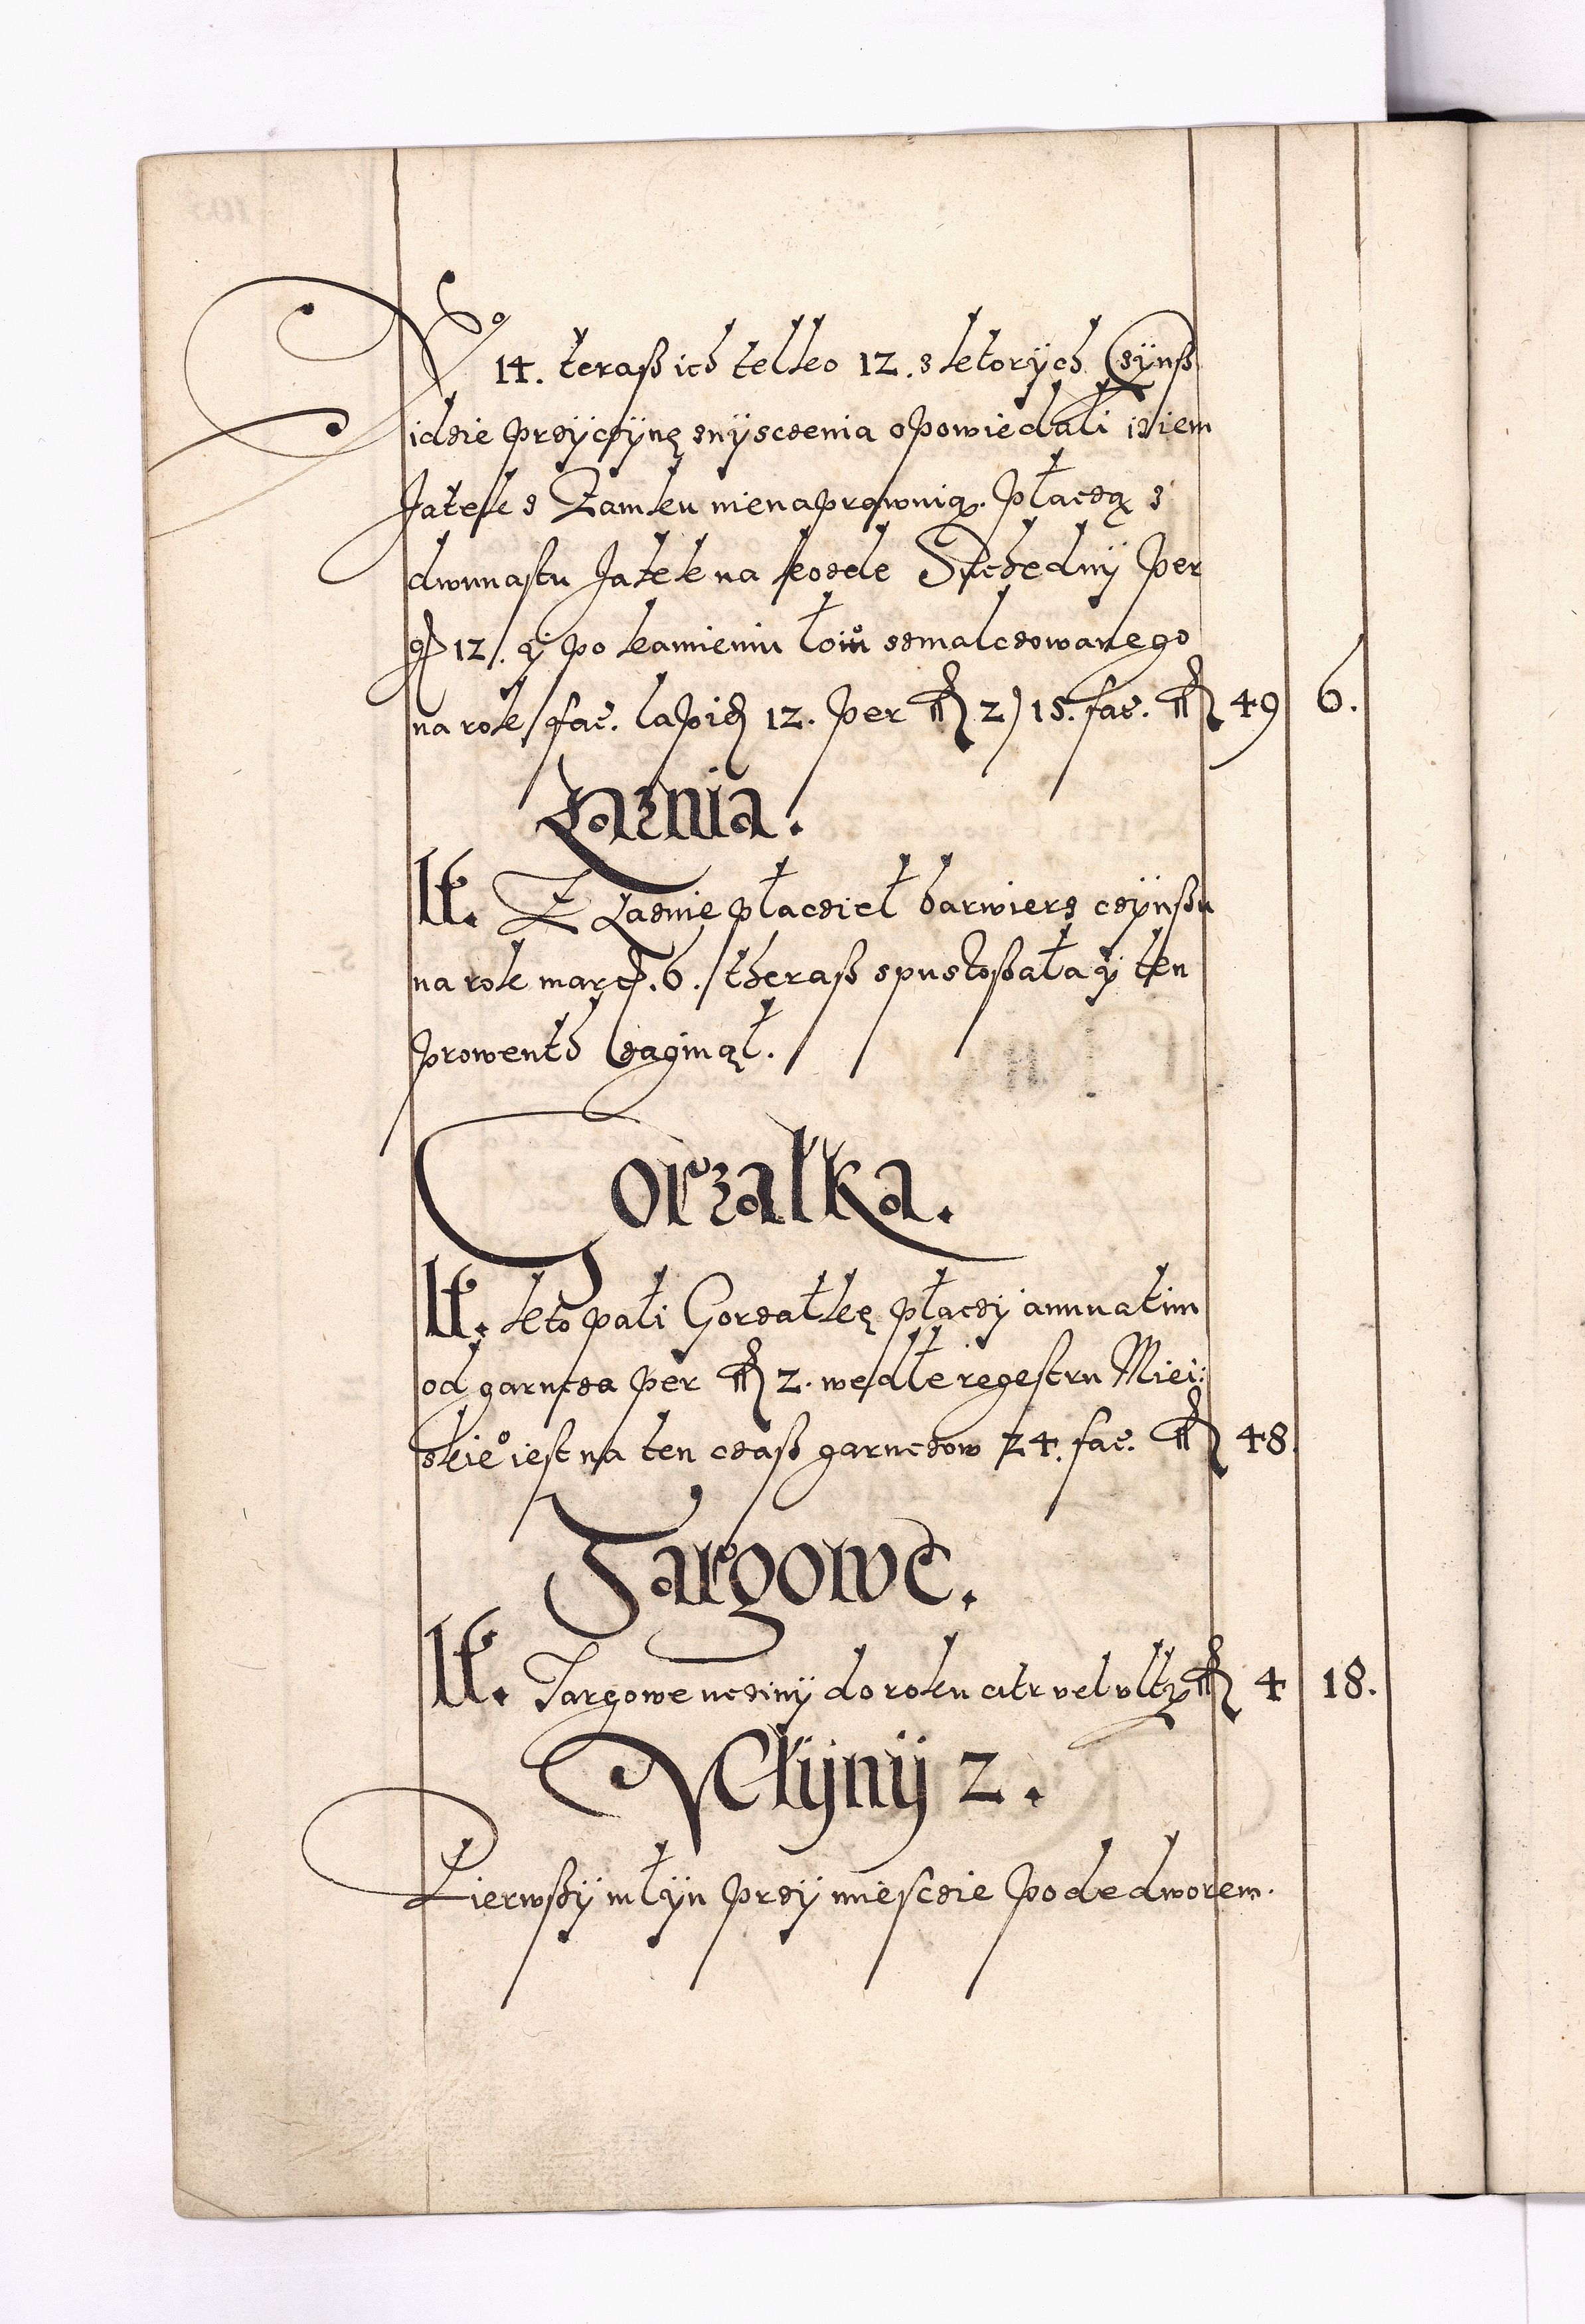 14. teraß ich telko 12. z ktorÿch Czÿnß
idzie przÿczÿnę znÿsczenia opowiedali iż iem
Jatek z Zamku nienaprawuią. płaczą z
dwunastu Jatek na kożde Suchedny per
gr 12/. ÿ po kamieniu łoiu zsmalczowanego
na rok / fac. lapid 12. per fl 2) 15. fac. fl 49 6.
Łaznia.
It. Z Łaznie płacził barwierz czÿnßu
na rok març. 6. / theraß spustoßała ÿ ten
prowenth zaginął.
Gorzalka.
It. kto pali Gorzałkę płaczÿ annuatim
od garncza per fl 2. wedłe regestru Miei:
skieo iest na ten czaß garnczow 24. fac. fl 48.
Targowe.
It. Targowe uczinÿ do roku citr vel vltr fl 4 18.
Młÿnÿ 2.
Pierwßÿ młÿn przÿ miesczie pode dworem.